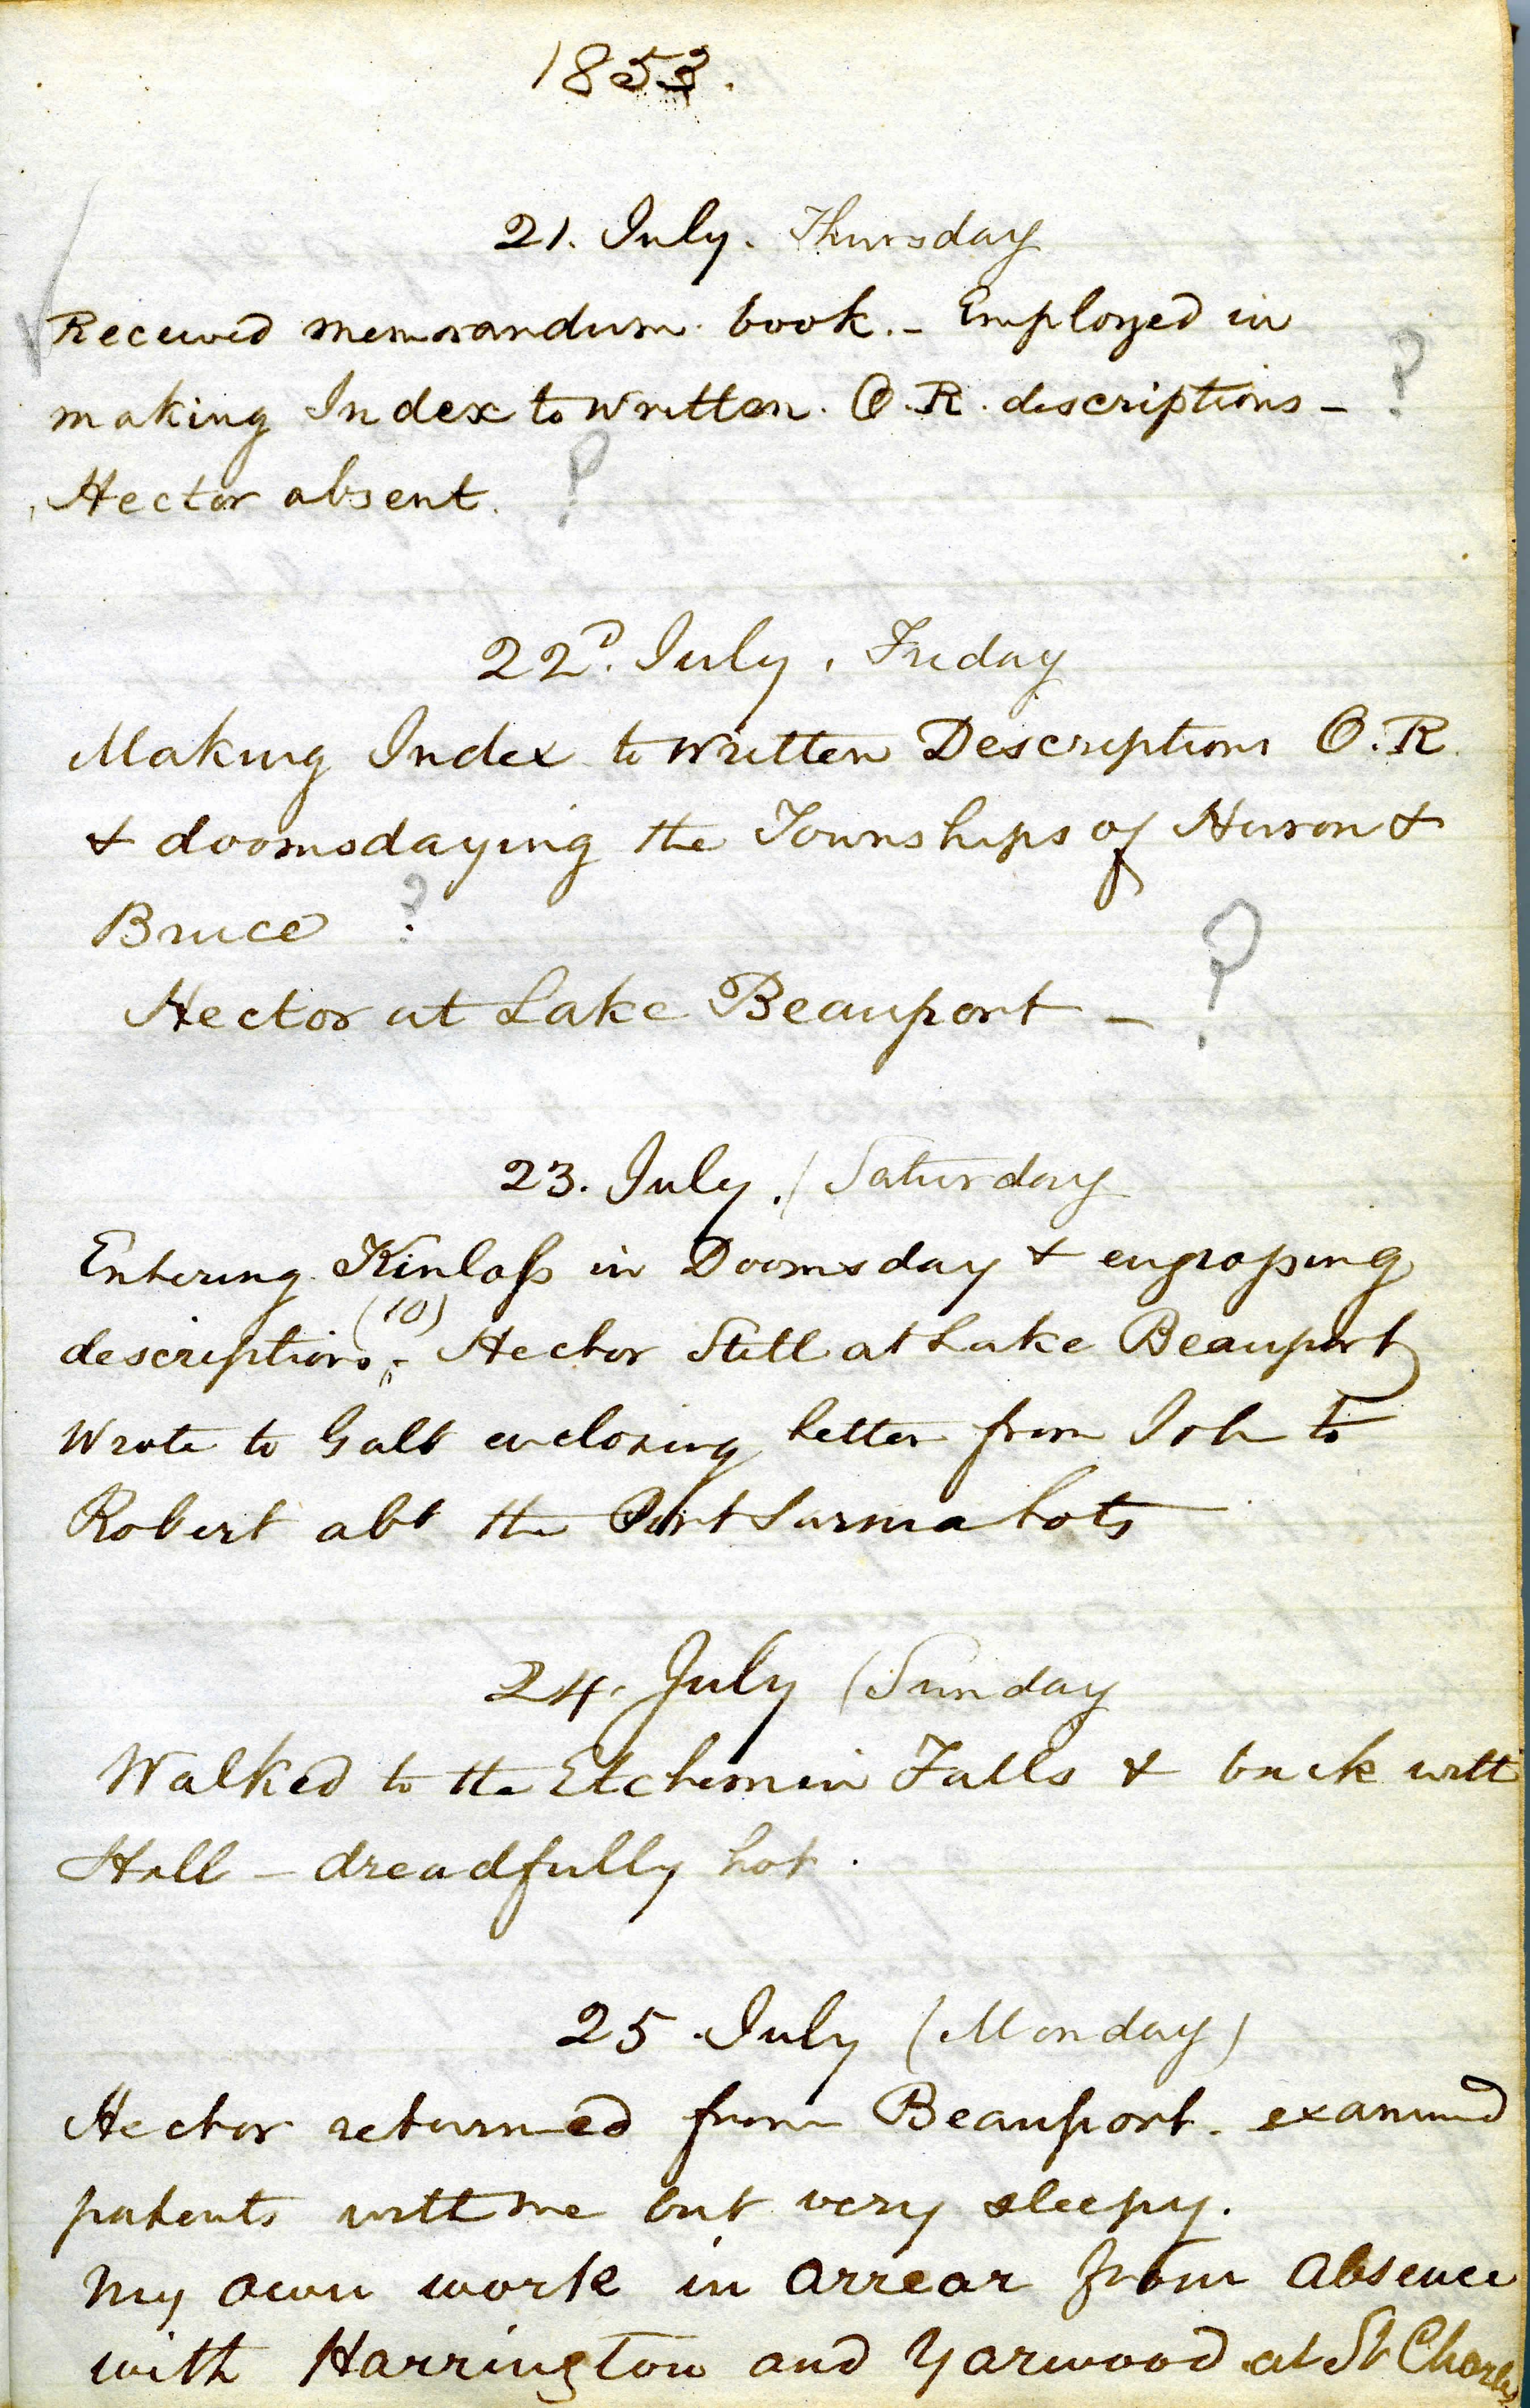 1853.
21. July. Thursday
Received memorandum book. - Employed in
making Index to written. O.R. descriptions - ?
Hector absent. ?
22D. July. Friday
Making Index to written Descriptions O.R.
& doomsdaying the Townships of Huron &
Bruce ?
Hector at Lake Beauport - ?
23. July. / Saturday
Entering Kinloss in Doomsday & engrossing
(10)
descriptions, - Hector Still at Lake Beauport
Wrote to Galt enclosing letter from Joh to
Robert abt the Port Sarnia Lots
24. July (Sunday
Walked to the Etchemin Falls & back with
Hall - dreadfully hot.
25 July (Monday)
Hector returned from Beauport. examined
patents with me but very sleepy.
My own work in arrear from absence
with Harrington and Yarwood at St Charles